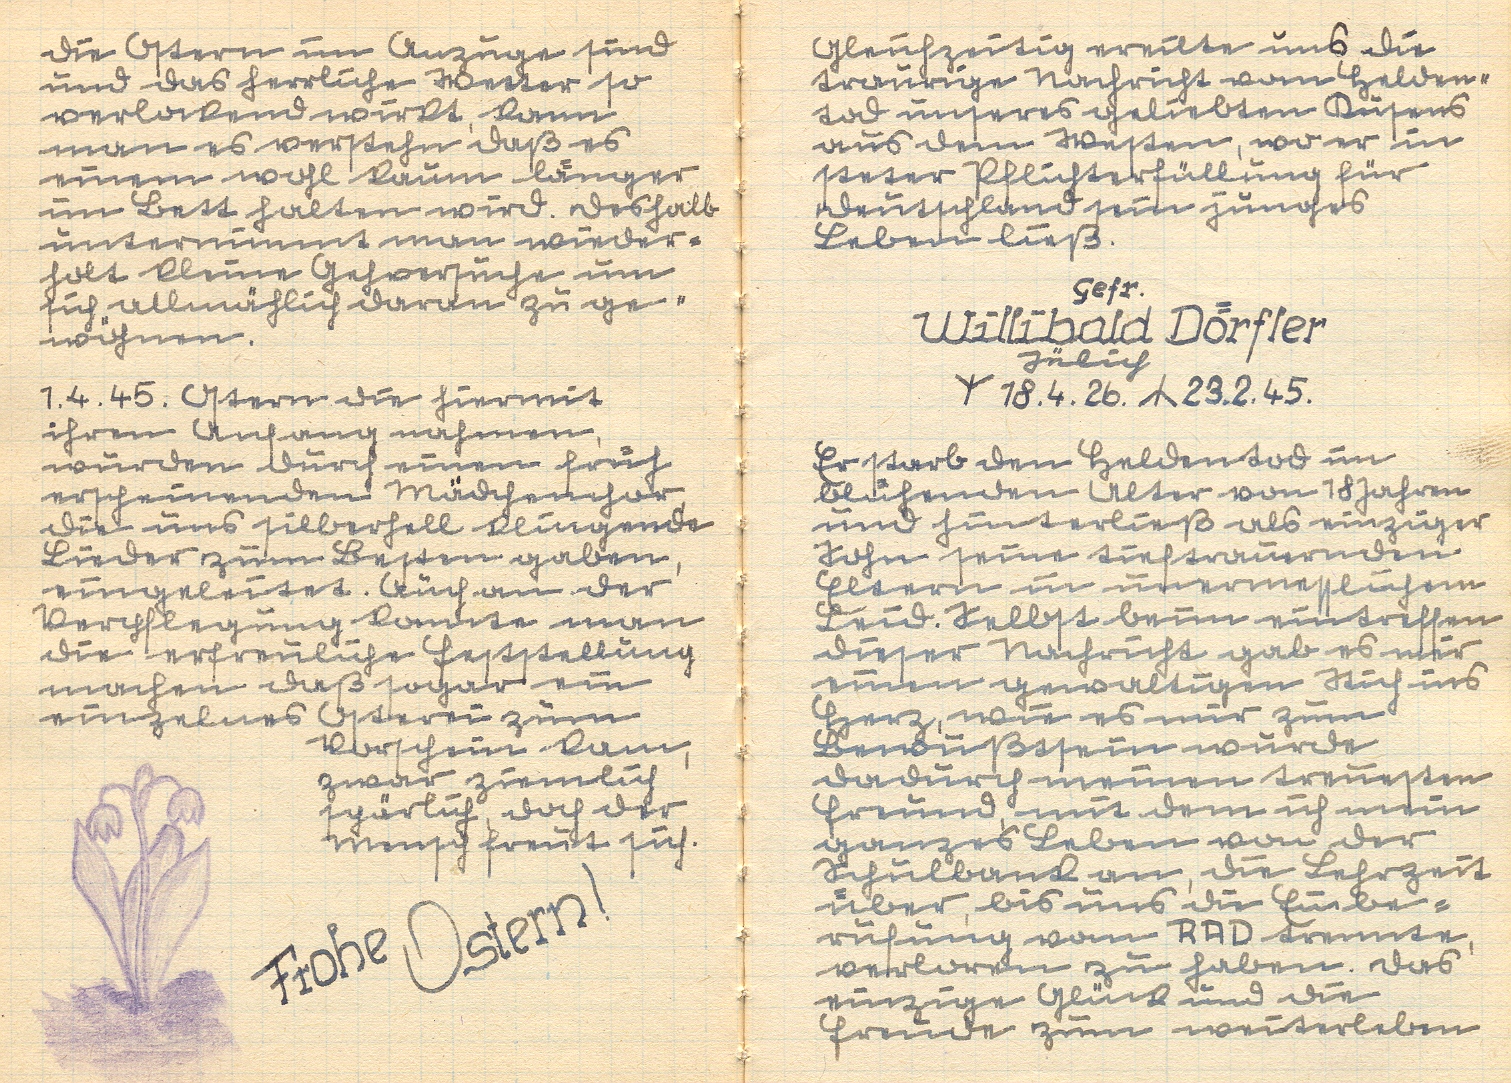 die Ostern im Anzuge sind
und das herrliche Wetter so
verlockend wirkt, kann
man es verstehn daß es
einem wohl kaum länger
im Bett halten wird. Deshalb
unternimmt man wieder-
holt kleine Gehversuche um
sich allmählich daran zu ge-
wöhnen.
1.4.45. Ostern die hiermit
ihren Anfang nahmen,
wurden durch einen früh
erscheinenden Mädchenchor,
die uns silberhell klingende
Lieder zum Besten gaben,
eingeleitet. Auch an der
Verpflegung konnte man
die erfreuliche Feststellung
machen daß sogar ein
einzelnes Osterei zum
Vorschein kam,
zwar ziemlich
spärlich, doch der
Mensch freut sich.
Frohe Ostern!
Gleichzeitig ereilte uns die
traurige Nachricht vom Helden-
tod unseres geliebten
aus dem Westen, wo er in
steter Pflichterfüllung für
Deutschland sein junges
Leben ließ.
Gefr.
Willibald Dörfler
Jülich
ᛉ 18.4.26. ᛣ 23.2.45.
Er starb den Heldentod im
blühenden Alter von 18 Jahren
und hinterließ als einziger
Sohn seine tieftrauernden
Eltern in unermesslichem
Leid. Selbst beim eintreffen
dieser Nachricht gab es mir
einen gewaltigen Stich ins
Herz, wie es mir zum
Bewußtsein wurde
dadurch meinen treuesten
Freund, mit dem ich mein
ganzes Leben von der
Schulbank an, die Lehrzeit
über, bis uns die Einbe-
rufung vom RAD trennte,
verloren zu haben. Das
einzige Glück und die
Freude zum weiterleben